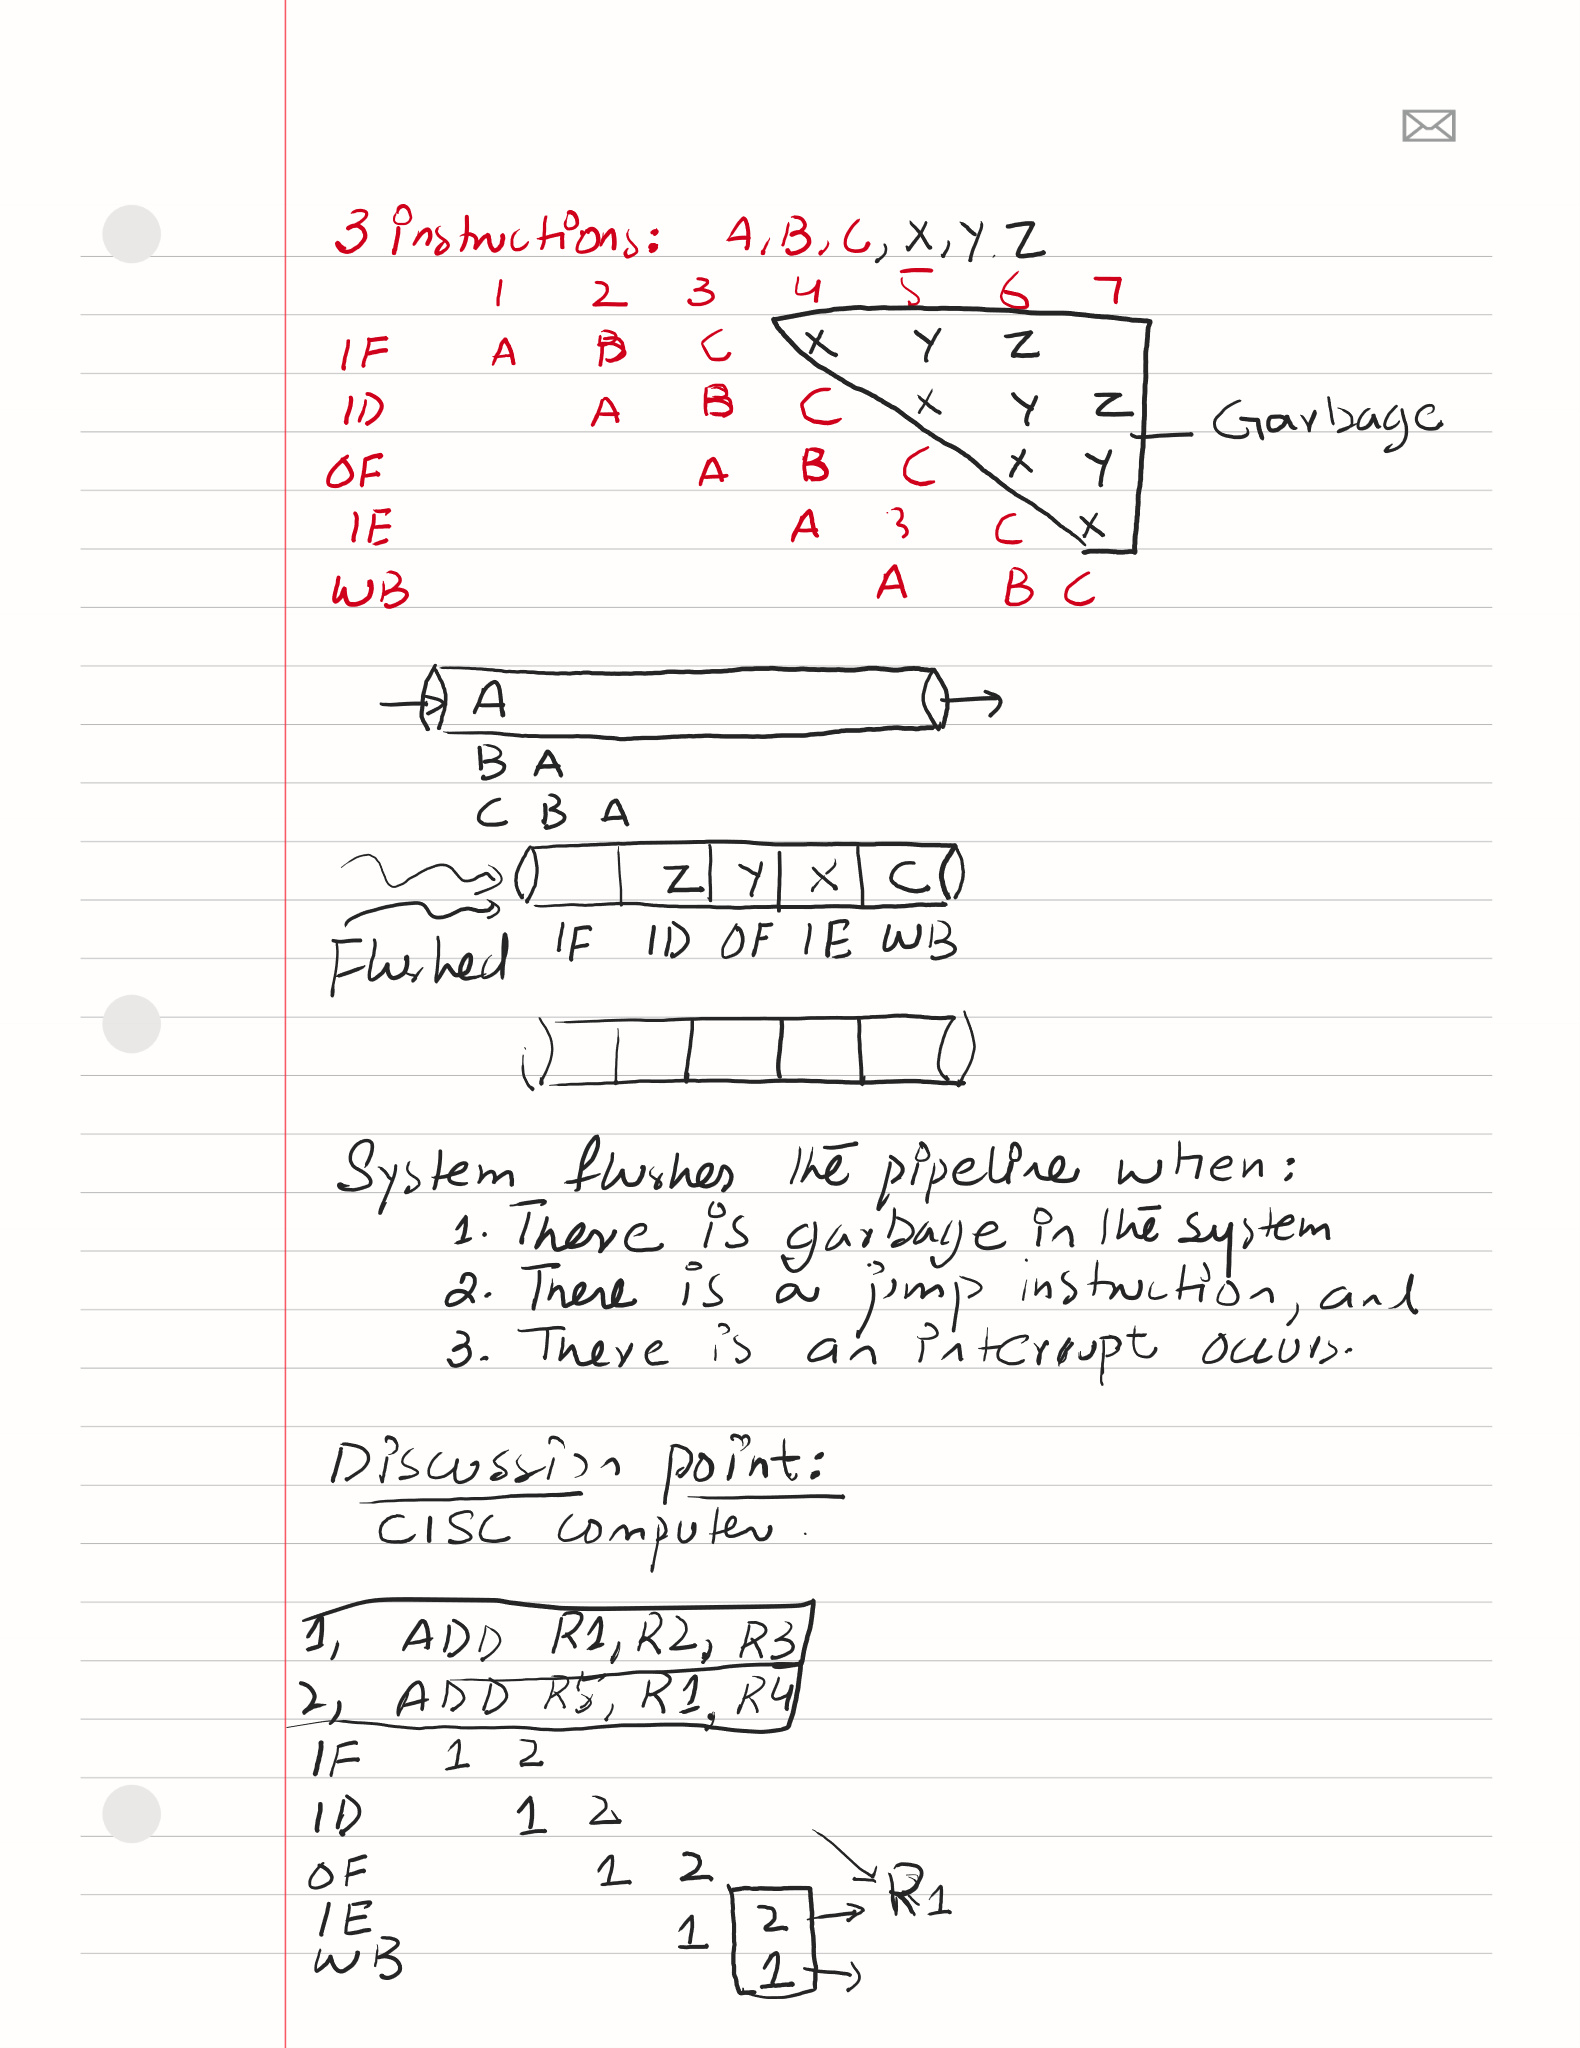 3 instructions: A, B, C, X, Y, Z
1 2 3 4 5 6 7
IF A B C X Y Z
ID A B C X Y Z
OF A B C X Y
IE A B C X
WB A B C
Garbage
A
B A
C B A
Z Y X C
IF ID OF IE WB
Flushed
System flushes the pipeline when:
1. There is garbage in the system
2. There is a jump instruction, and
3. There is an interrupt occurs.
Discussion point:
CISC computer.
1, ADD R1, R2, R3
2, ADD R5, R1, R4
IF 1 2
ID 1 2
OF 1 2
IE 1 2
WB 1
R1